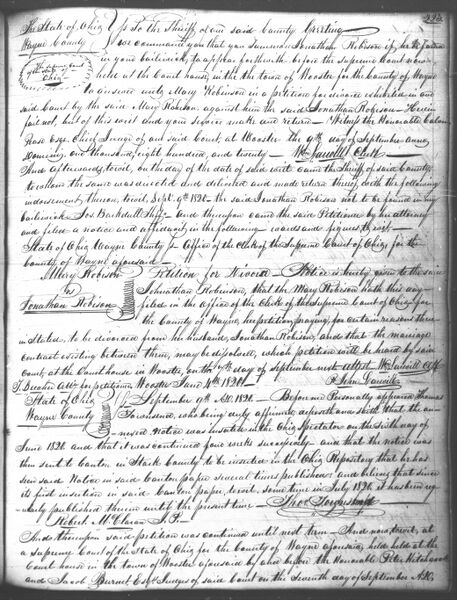 223
The State of Ohio } ss To the Sheriff of our said County Greeting
Wayne County } You are commanded that you summon Jonathan Robison if he be found
in your bailiwick, to appear forthwith before the Supreme Court now
held at the Court house, in the town of Wooster for the County of Wayne
The Supreme Court of the State of Ohio
to answer unto Mary Robinson in a petition for divorce exhibited in our
said Court by the said Mary Robison against him the said Jonathan Robison - Herein
fail not, but of this writ and your service make due return - Witness the Honorable Calvin
Pease Esqr. Chief Judge of our said Court, at Wooster the 9th day of September Anno
Domini, one thousand, eight hundred, and twenty - Wm Clerk
And afterwards, towit, on the day of the date of said writ came the Sheriff of said County,
to whom the same was directed and delivered and made return thereof, with the following
indorsement thereon, towit, Sept. 9th 1820 - the said Jonathan Robison not to be found in my
bailiwick Jos. Barkdull Shff - and thereupon came the said Petitioner by her attorney
and filed a notice and affidavit, in the following words and figures, towit -
State of Ohio, Wayne County ss Office of the Clerk of the Supreme Court of Ohio, for the
County of Wayne aforesaid -
Mary Robison } Petition for Divorce - Notice is hereby given to the said
vs } Johnathan Robinson, that the Mary Robison hath this day
Jonathan Robison } filed in the office of the Clerk of the Supreme Court of Ohio, for
the County of Wayne, her petition, praying, for certain reasons there
in stated, to be divorced from her husband, Jonathan Robison, and that the marriage
contract existing between them, may be dissolved, which petition will be heard by said
court, at the Court house in Wooster, on the day of september next - Attest Wm
Atto. for petitioner, Wooster June 4th 1820
State of Ohio } September 9th A.D. 1820 - Before me Personally appeared Thomas
Wayne County } Townsend, who being duly affirmed, deposeth and saith that the an-
nexed Notice was inserted in the Ohio Spectator on the sixth day of
June 1820 and that it was continued four weeks successively - and that the notice was
then sent to Canton in Stark County to be inserted in the Ohio Repository that he has
seen said Notice in said Canton paper several times published, and believes that since
its first insertion in said Canton paper, towit, some time in July 1820, it has been reg-
ularly published therein until the present time -
Robert McClaran J.P.
And thereupon said petition was continued until next term - And now, towit, at
a Supreme Court of the State of Ohio for the County of Wayne aforesaid, held at the
Court house in the town of Wooster aforesaid by and before the Honorable Peter Hitchcock
and Jacob Burnet Esqrs Judges of said Court on the seventh day of September A.D.